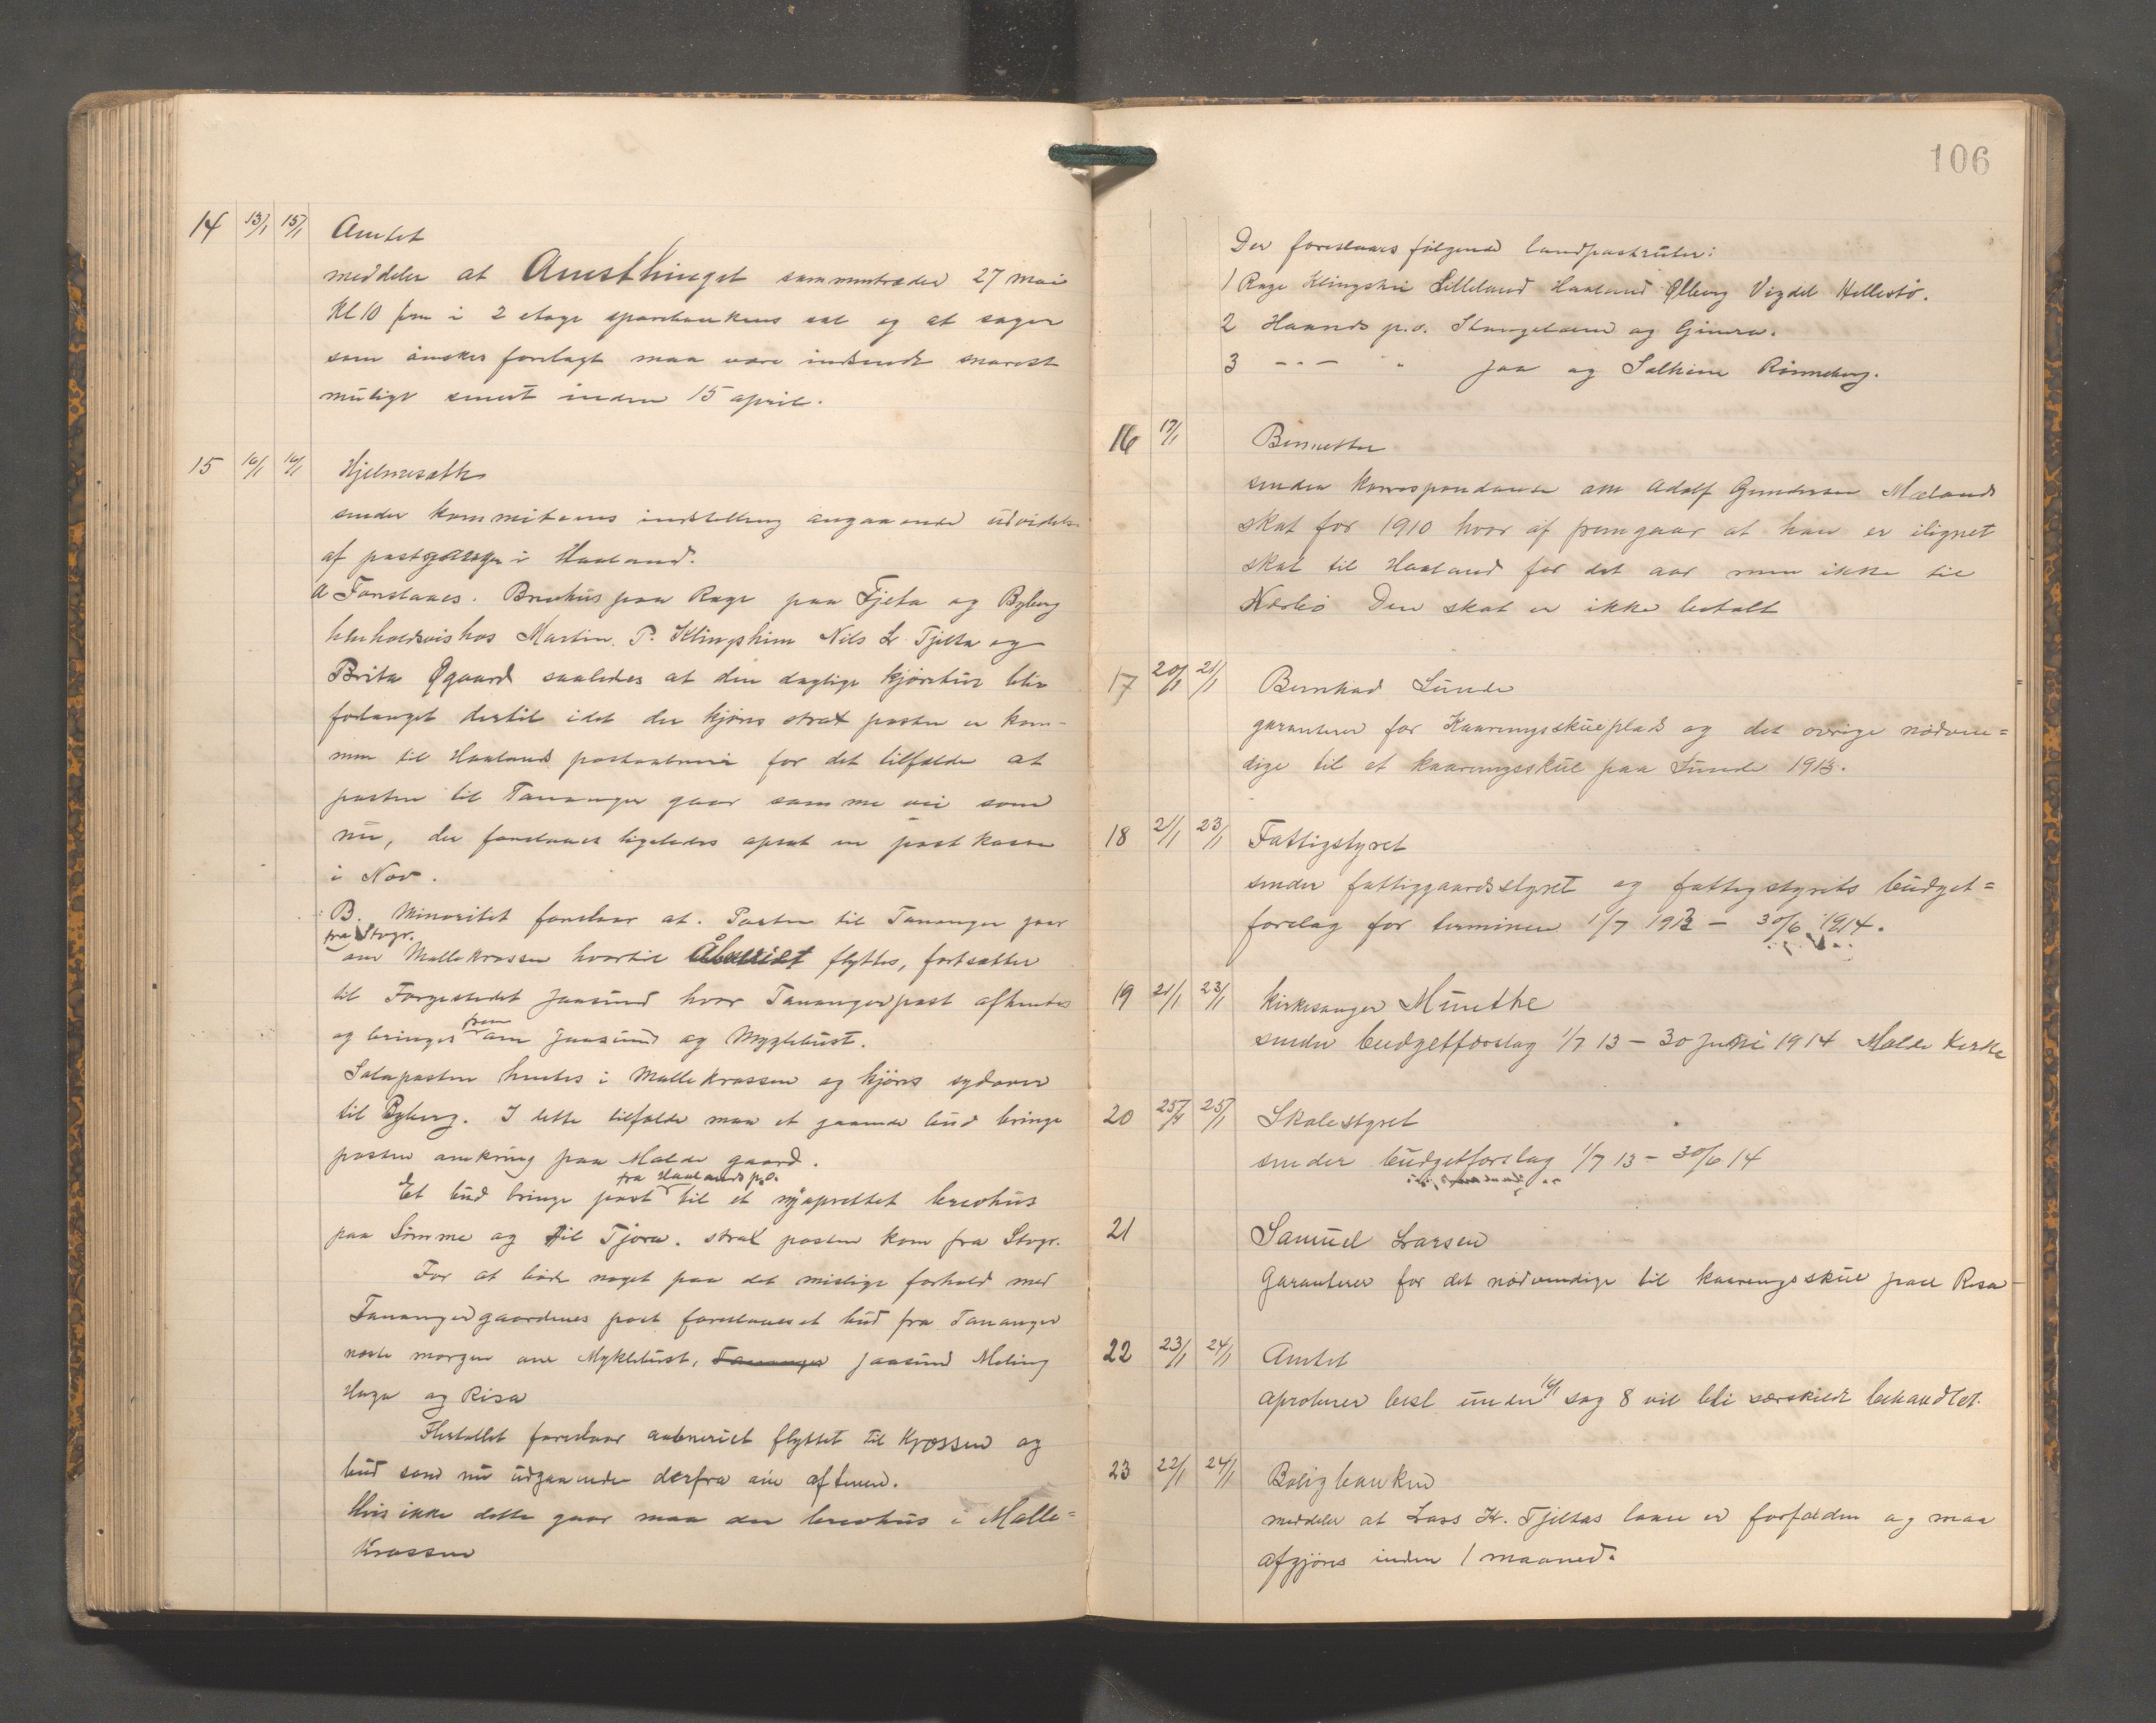 14 13/1 15/1 Amtet
meddeler at Amtsthinget sammentræder 27 mai
Kl 10 fm i 2 etage sparebankens sal og at sager
som ønskes forelagt maa være indsendt snarest
muligt senest inden 15 april.
15 16/1 16/1 Hjelmesæth
sender kommiteens indstilling angaaende udvidelse
af postgangen i Haaland.
A Foreslaaes. Brevhus paa Rage paa Tjelta og Byberg
henholdsvis hos Martin. P. Klingsheim Nils L. Tjelta og
Brita Øgaard saaledes at den daglige kjøretur blir
forlænget dertil idet der kjøres strax posten er kom-
men til Haalands postaabneri for det tilfælde at
posten til Tananger gaar samme vei som
nu, der foreslaaes ligeledes opsat en postkasse
i Nov.
B. Minoritet foreslaar at. Posten til Tananger gaar
fra Stvgr.
om Mallekrossen hvortil Åbneriet flyttes, fortsætter
til Forgestedet Jaasund hvor Tanangerpost afhentes
og bringes frem om Jaasund og Myglebust.
Solaposten hentes i Mallekrossen og kjøres sydover
til Byberg. I dette tilfælde maa et gaaende bud bringe
posten omkring paa Malde gaard.
fra Haalands p.o.
Et bud bringe post til et nyoprettet brevhus
paa Sømme og til Tjora. strax posten kom fra Stvgr.
For at bøde noget paa det mislige forhold med
Tanangergaardenes post foreslaaes et bud fra Tananger
næste morgen om Myklebust, Tananger Jaasund Meling
Haga og Risa
Flertallet foreslaar aabneriet flyttet til Krossen og
bud som nu udgaaende derfra om aftenen.
Hvis ikke dette gaar maa der brevhus i Malle=
Krossen
106
Der foreslaaes følgende landpostruter:
1 Rage Klingshei Lilleland Haaland Ølberg Vigdel Hellestø.
2 Haalands p.o. Stangeland og Gimra.
3 - - - " Joa og Solheim Rønneberg.
16 17/1 Bennetter
sender korrespondance om Adolf Gundersen Mælands
skat for 1910 hvor af fremgaar at han er ilignet
skat til Haaland for det aar men ikke til
Nærbø Den skat er ikke betalt
17 20/1 21/1 Bernhad Sunde
garanterer for Kaaringsskueplads og det øvrige nødven=
dige til et kaaringsskue paa Sunde 1913.
18 21/1 23/1 Fattigstyret
sender fattiggaardsstyret og fattigstyrets budget=
forslag for terminen 1/7 1913 - 30/6 1914.
19 21/1 23/1 Kirkesanger Munthe
sender budgetforslag 1/7 13 - 30 juni 1914 Malde Kirke
20 25/1 25/1 Skolestyret
sender budgetforslag 1/7 13 - 30/6 14
21 Samuel Larsen
Garanterer for det nødvendige til kaaringsskue paa Risa
22 23/1 24/1 Amtet
aproberer besl under 16/1 sag 8 vil bli særskilt behandlet.
23 22/1 24/1 Boligbanken
meddeler at Lars K. Tjeltas laan er forfalden og maa
afgjøres inden 1 maaned.